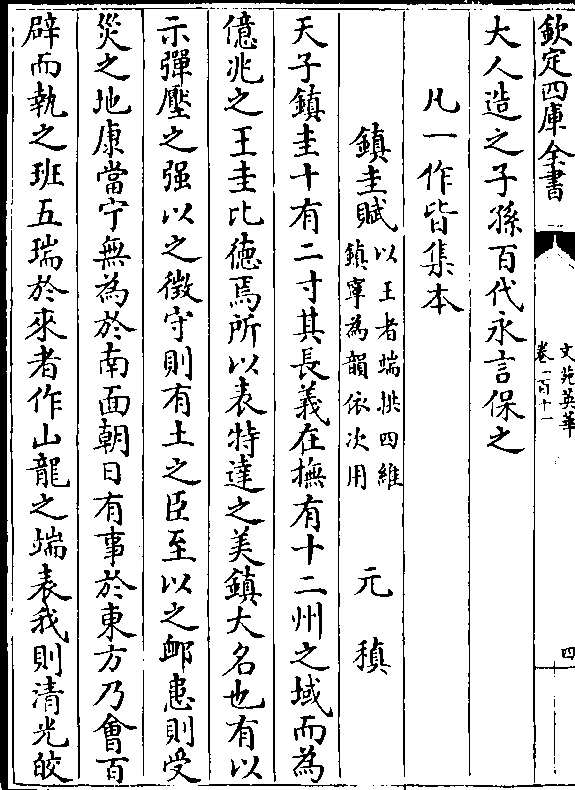 欽定四庫全書
文苑英華
卷一百十一
四
大人造之子孫百代永言保之
凡一作皆集本
鎮圭賦以王者端拱四維
鎮寧為韻依次用
元稹
天子鎮圭十有二寸其長義在撫有十二州之域而為
億兆之王圭比徳焉所以表特達之美鎮大名也有以
示彈壓之强以之徵守則有土之臣至以之䘏患則受
災之地康當宁無為於南面朝日有事於東方乃會百
辟而執之班五瑞於來者作山龍之端表我則清光皎